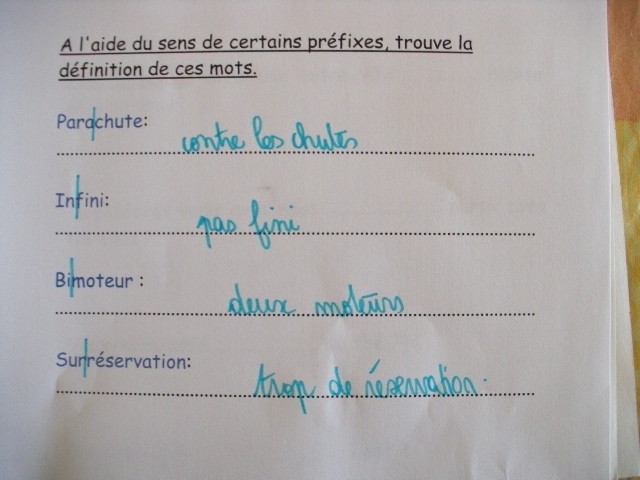 A l'aide du sens de certains préfixes, trouve la
définition de ces mots.
Parachute:
contre les chutes
Infini:
pas fini
Bimoteur :
deux moteurs
Surréservation:
trop de réservation.